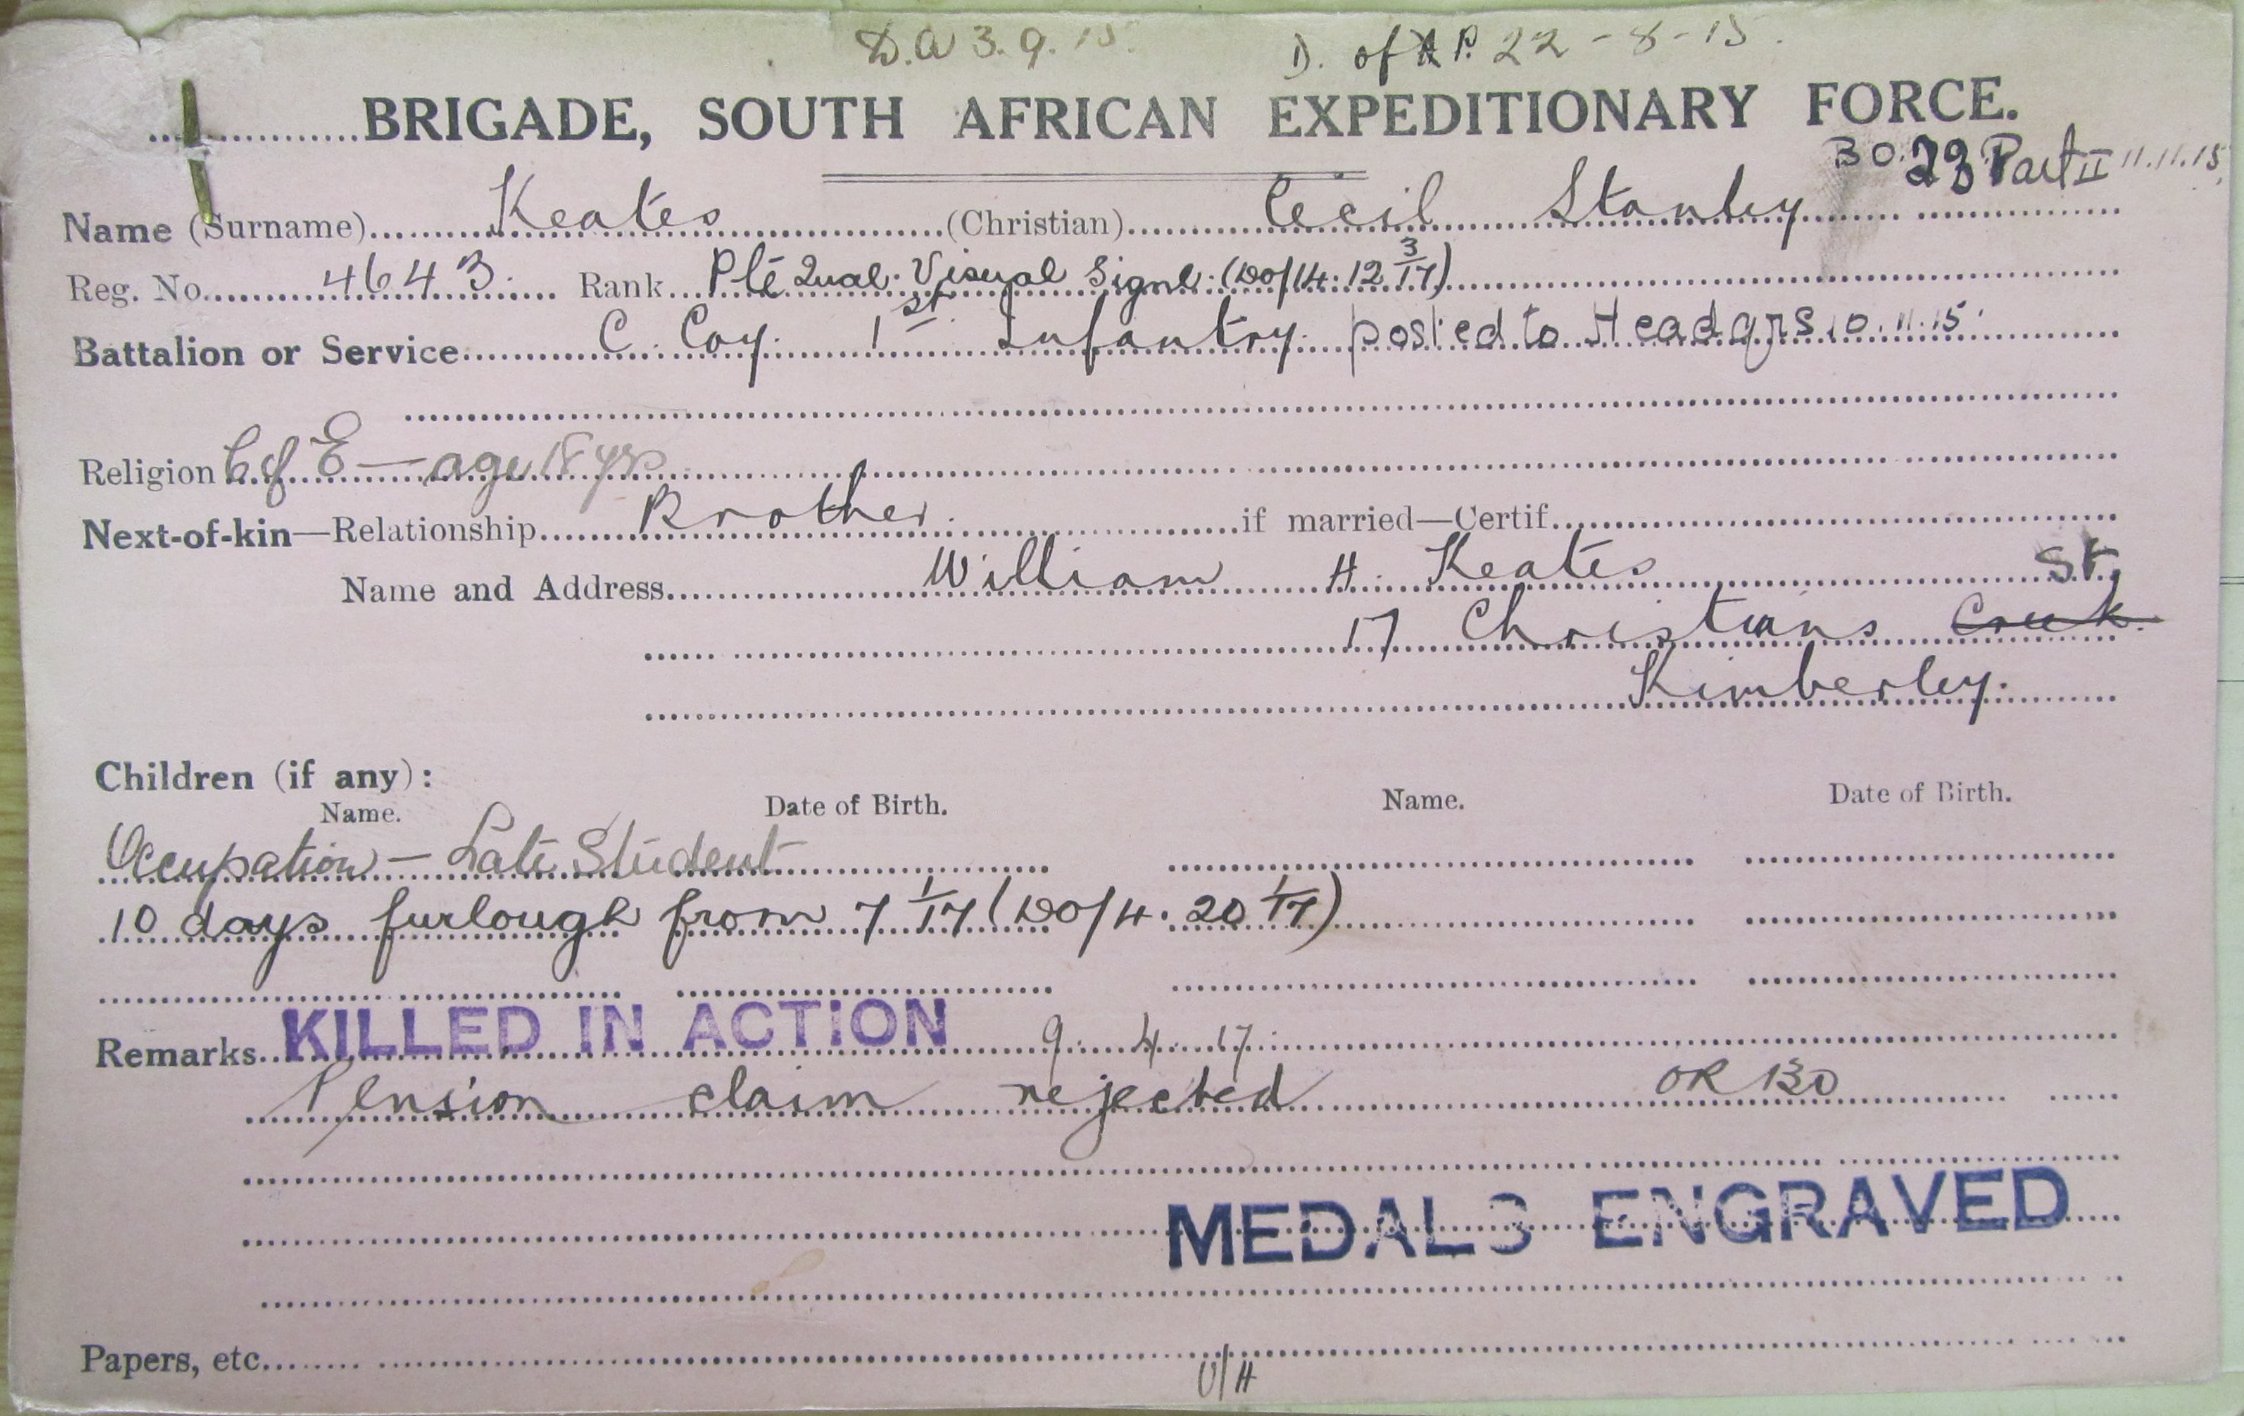 D.A 3.9.15. D. of P. 22-8-15.
BRIGADE, SOUTH AFRICAN EXPEDITIONARY FORCE.
BO. 23 Part II 11.11.15
Name (Surname) Keates (Christian) Cecil Stanley
Reg. No. 4643. Rank Pte Qual. Visual Signl. (DO/14. 12 3/17)
Battalion or Service C. Coy. 1st Infantry. posted to Headqrs 10.11.15
Religion C of E — age 18 yrs
Next-of-kin—Relationship Brother. if married—Certif.
Name and Address William H. Keates
17 Christians Creek St.
Kimberley.
Children (if any):
Name. Date of Birth. Name. Date of Birth.
Occupation — Late Student
10 days furlough from 7 1/17 (DO/4. 20 1/17)
Remarks KILLED IN ACTION 9. 4. 17.
Pension claim rejected OR BO
MEDALS ENGRAVED
Papers, etc.
U/H